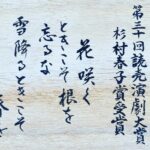 第三十回読売演劇大賞
杉村春子賞受賞
花咲く
ときこそ根を
忘るな
雪降るときこそ